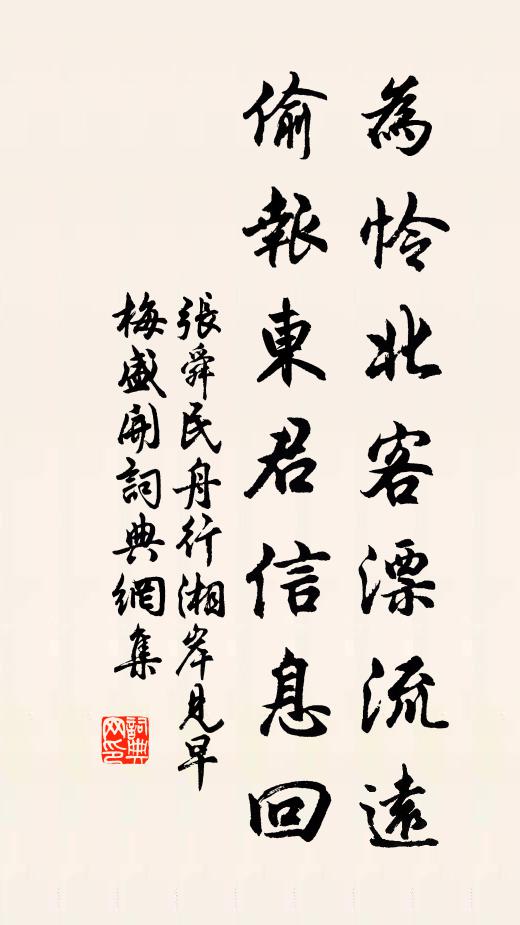 為憐北客漂流遠
偷報東君信息回
張舜民舟行湘岸見早
梅盛開詞典網集
詞典
网印